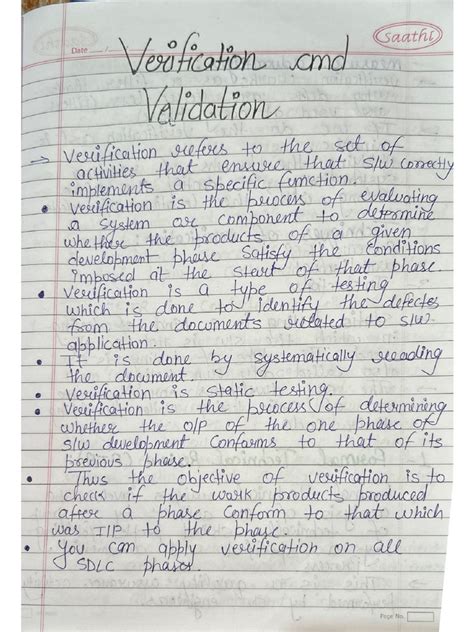 Saathi
Date ___/___/___
Verification and
Validation
→ Verification refers to the set of
activities that ensure that S/W correctly
implements a specific function.
• Verification is the process of evaluating
a system or component to determine
whether the products of a given
development phase satisfy the conditions
imposed at the start of that phase.
• Verification is a type of testing
which is done to identify the defectes
from the documents related to S/W
application.
• It is done by systematically reading
the document.
• Verification is static testing.
• Verification is the process of determining
whether the O/P of the one phase of
S/W development Conforms to that of its
previous phase.
• Thus the objective of verification is to
check if the work products produced
after a phase Conform to that which
was I/P to the phase.
• You can apply verification on all
SDLC phases.
Page No.